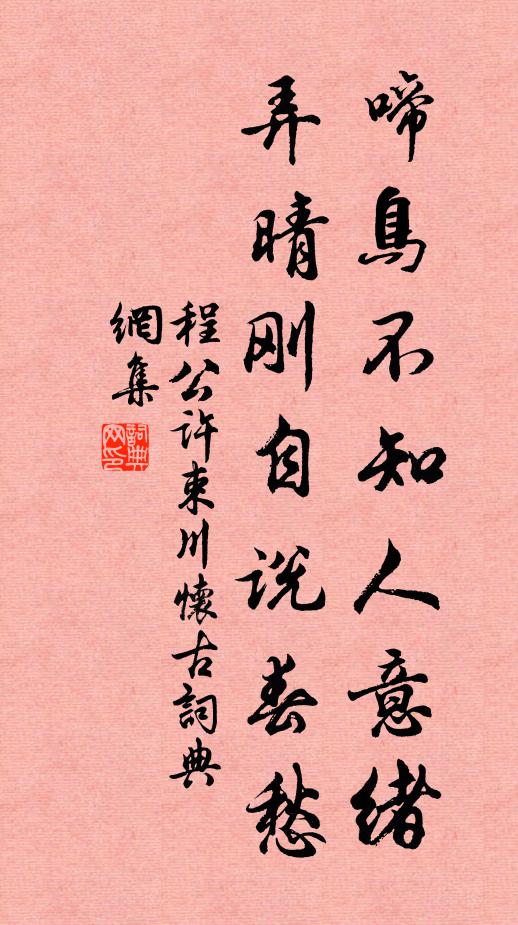 啼鳥不知人意緒
弄晴刚自説春愁
程公許東川懷古詞典
網集
詞典
网印